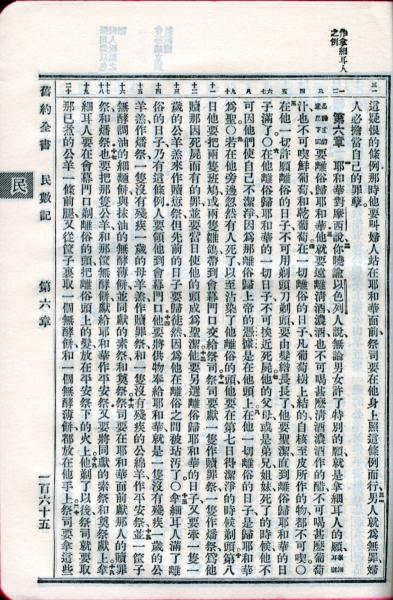 作拿細耳人
之例
這疑恨的條例、那時他要叫婦人站在耶和華面前、祭司要在他身上照這條例而行、男人就為無罪、婦
人必擔當自己的罪孽
第六章 耶和華對摩西說、曉諭以色列人說、無論男女許了特別的願、就是拿細耳人的願、
要離俗歸耶和華、他就要遠離清酒濃酒、也不可喝甚麼清酒濃酒作的醋、不可喝甚麼葡萄
汁、也不可喫鮮葡萄和乾葡萄、在一切離俗的日子、凡葡萄樹上結的、自核至皮所作的物、都不可喫○
在他一切許願離俗的日子、不可用剃頭刀剃頭、要由髮綹長長了、他要聖潔、直到離俗歸耶和華的日
子滿了○在他離俗歸耶和華的一切日子、不可挨近死屍、他的父母或是弟兄姐妹死了的時候、他不
可因他們使自己不潔淨、因為那離俗歸上帝的憑據、是在他頭上、在他一切離俗的日子、是歸耶和華
為聖○若在他旁邊忽然有人死了、以至沾染了他離俗的頭、他要在第七日得潔淨的時候剃頭、第八
日他要把兩隻斑鳩或兩隻雛鴿、帶到會幕門口交給祭司、祭司要獻一隻作贖罪祭、一隻作燔祭、為他
贖那因死屍而有的罪、並要當日使他的頭成為聖潔、他要另選離俗歸耶和華的日子、又要牽一隻一
歲的公羊羔來作贖愆祭、但先前的日子要歸徒然、因為他在離俗之間被玷污了○拿細耳人滿了離
俗的日子、乃有這條例、人要領他到會幕門口、他要將供物奉給耶和華、就是一隻沒有殘疾一歲的公
羊羔作燔祭、一隻沒有殘疾一歲的母羊羔作贖罪祭、和一隻沒有殘疾的公綿羊作平安祭、並一筐子
無酵調油的細麵餅、與抹油的無酵薄餅、並同獻的素祭和奠祭、祭司要在耶和華面前獻那人的贖罪
祭和燔祭、也要把那隻公羊和那筐無酵餅獻給耶和華作平安祭、又要將同獻的素祭和奠祭獻上、拿
細耳人要在會幕門口剃離俗的頭、把離俗頭上的髮放在平安祭下的火上、他剃了以後、祭司就要取
那已煮的公羊一條前腿、又從筐子裏取一個無酵餅和一個無酵薄餅、都放在他手上、祭司要拿這些
舊約全書 民數記 第六章 一百六十五
民